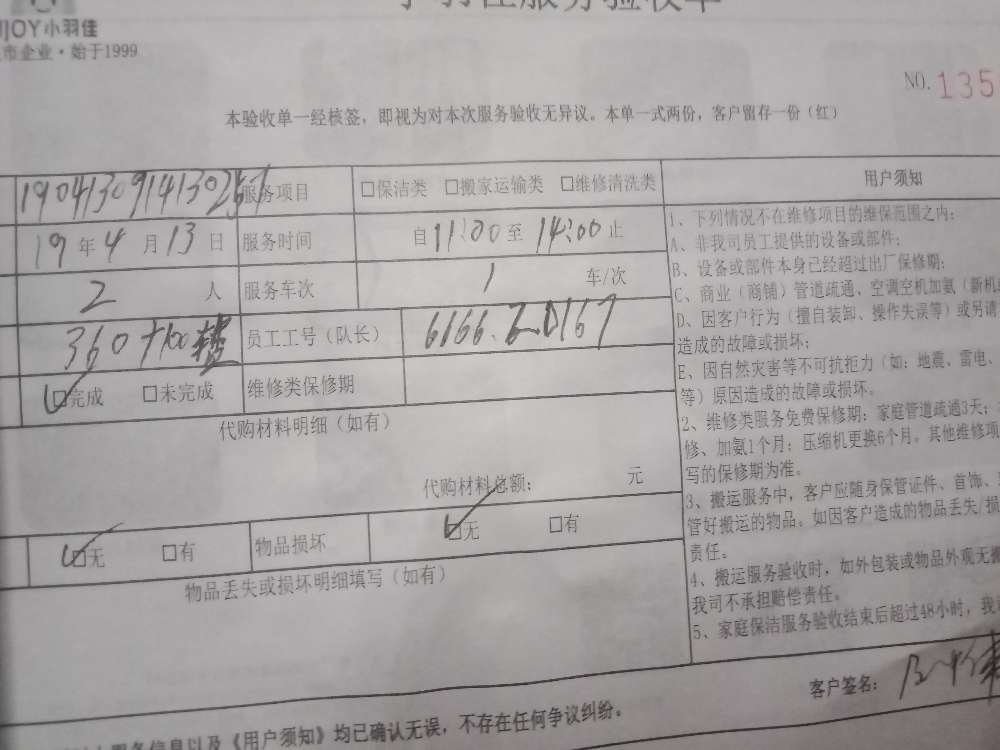 小羽佳服务验收单
JOY小羽佳
市企业·始于1999
NO. 135
本验收单一经核签，即视为对本次服务验收无异议。本单一式两份，客户留存一份（红）
服务项目 □保洁类 □搬家运输类 □维修清洗类
19年4月13日 服务时间 自11:00至14:00止
2人 服务车次 1 车/次
360+100楼 员工工号（队长）
□完成 □未完成 维修类保修期
代购材料明细（如有）
代购材料总额： 元
□无 □有 物品损坏 □无 □有
物品丢失或损坏明细填写（如有）
用户须知
1、下列情况不在维修项目的维保范围之内：
A、非我司员工提供的设备或部件；
B、设备或部件本身已经超过出厂保修期；
C、商业（商铺）管道疏通、空调空机加氨（新机
D、因客户行为（擅自装卸、操作失误等）或另请
造成的故障或损坏；
E、因自然灾害等不可抗拒力（如：地震、雷电、
等）原因造成的故障或损坏。
2、维修类服务免费保修期：家庭管道疏通3天；
修、加氨1个月；压缩机更换6个月。其他维修项
写的保修期为准。
3、搬运服务中，客户应随身保管证件、首饰、
管好搬运的物品。如因客户造成的物品丢失/损
责任。
4、搬运服务验收时，如外包装或物品外观无
我司不承担赔偿责任。
5、家庭保洁服务验收结束后超过48小时，我
客户签名：
服务信息以及《用户须知》均已确认无误，不存在任何争议纠纷。